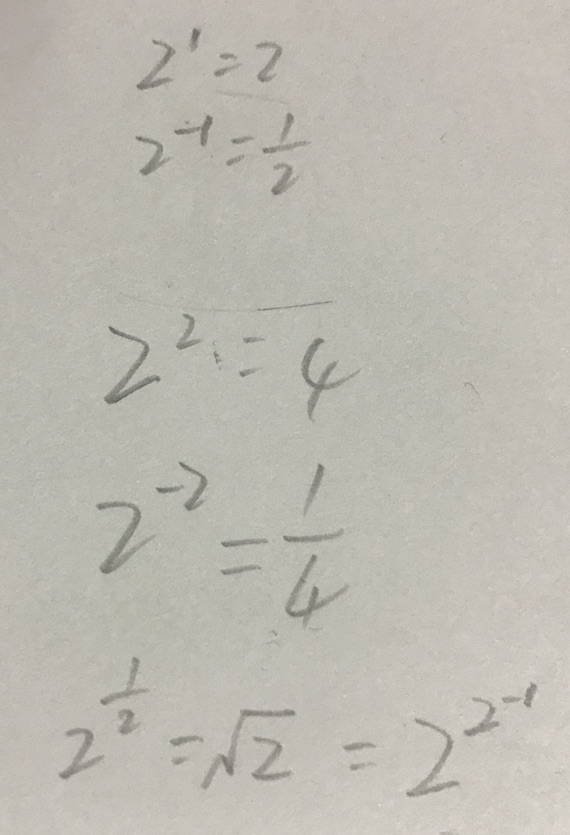 2¹=2
2⁻¹=1/2
2²=4
2⁻²=1/4
2^(1/2)=√2=2^(2⁻¹)